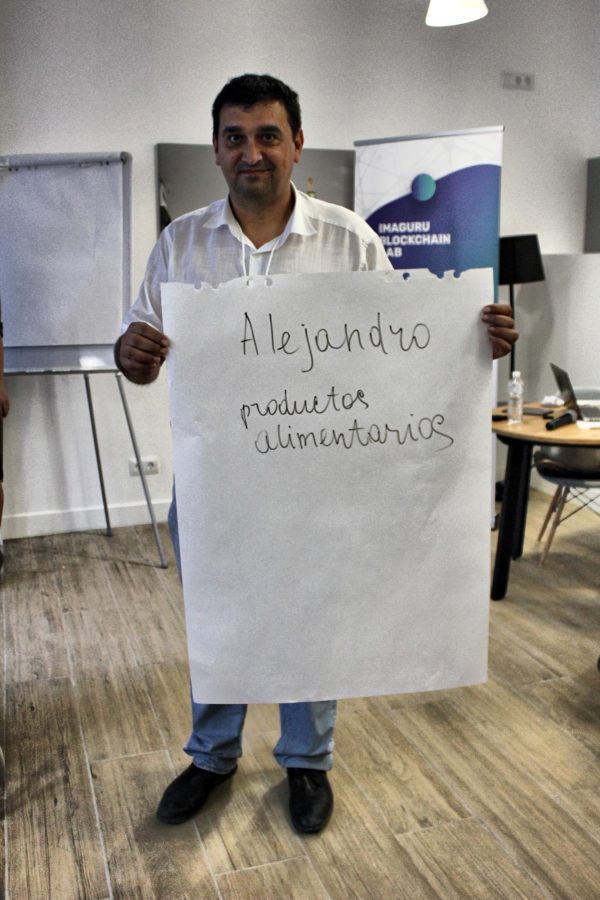 IMAGURU
BLOCKCHAIN
LAB
Alejandro
productos
alimentarios